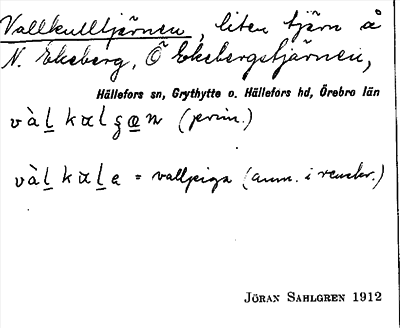 Vallkulltjärnen, liten tjärn å
N. Ekeberg, Ö Ekebergstjärnen,
Hällefors sn, Grythytte o. Hällefors hd, Örebro län
(prim.)
= vallpiga (anm. i
JÖRAN SAHLGREN 1912